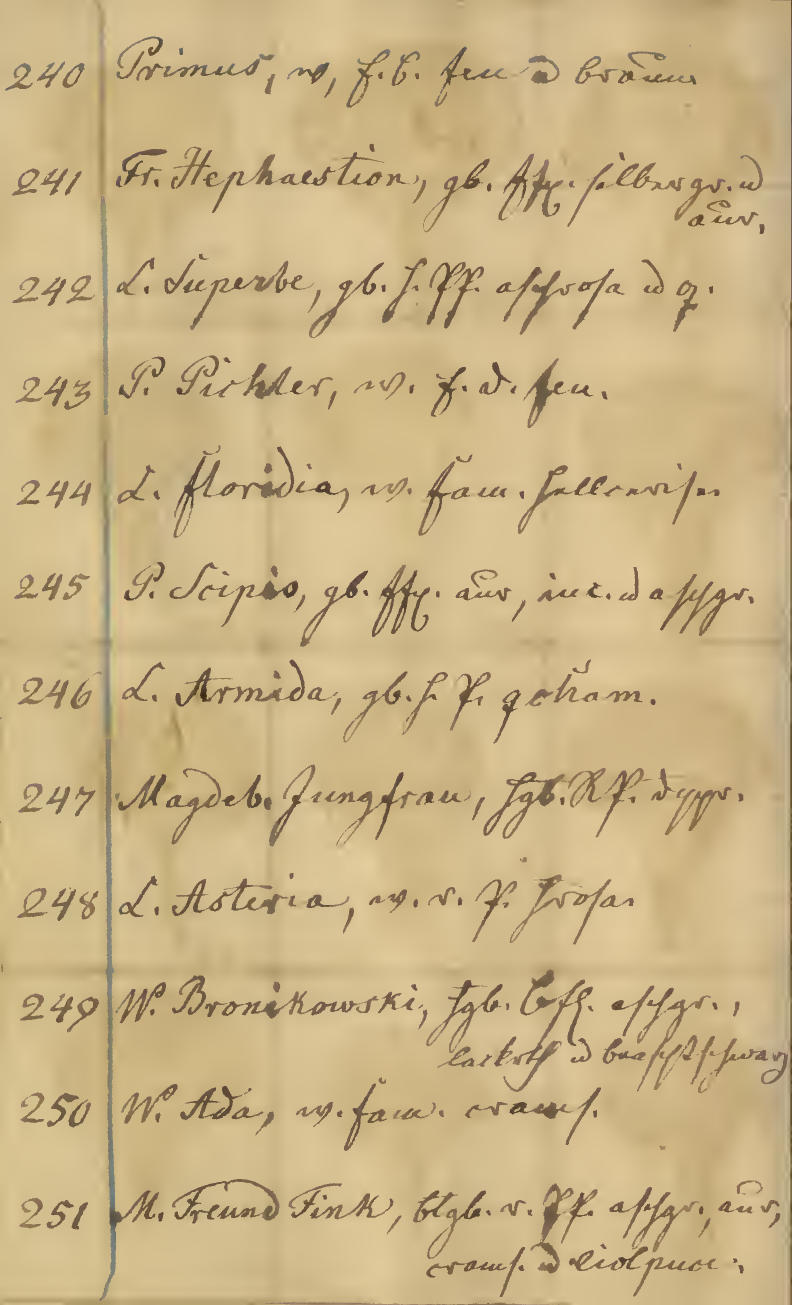 240 Primus, w, f. b. feu u braun
241 Fr. Hephaestion, gb. ffx. silbergr. u
aur,
242 L. Superbe, gb. h. PP. aschrosa u
243 P. Pichler, w. f. d. feu.
244 L. Floridia, w. fam. hellcerise
245 P. Scipio, gb. ffx. aur, inc. u aschgr.
246 L. Armida, gb. h. P.
247 Magdeb. Jungfrau, hgb. RP.
248 L. Asteria, w. r. P. hrosa
249 W. Bronikowski, hgb. aschgr.,
lackrth u
250 W. Ada, w. fam. crams.
251 M. Freund Fink, btgb. r. PP. aschgr., aur,
crams. u